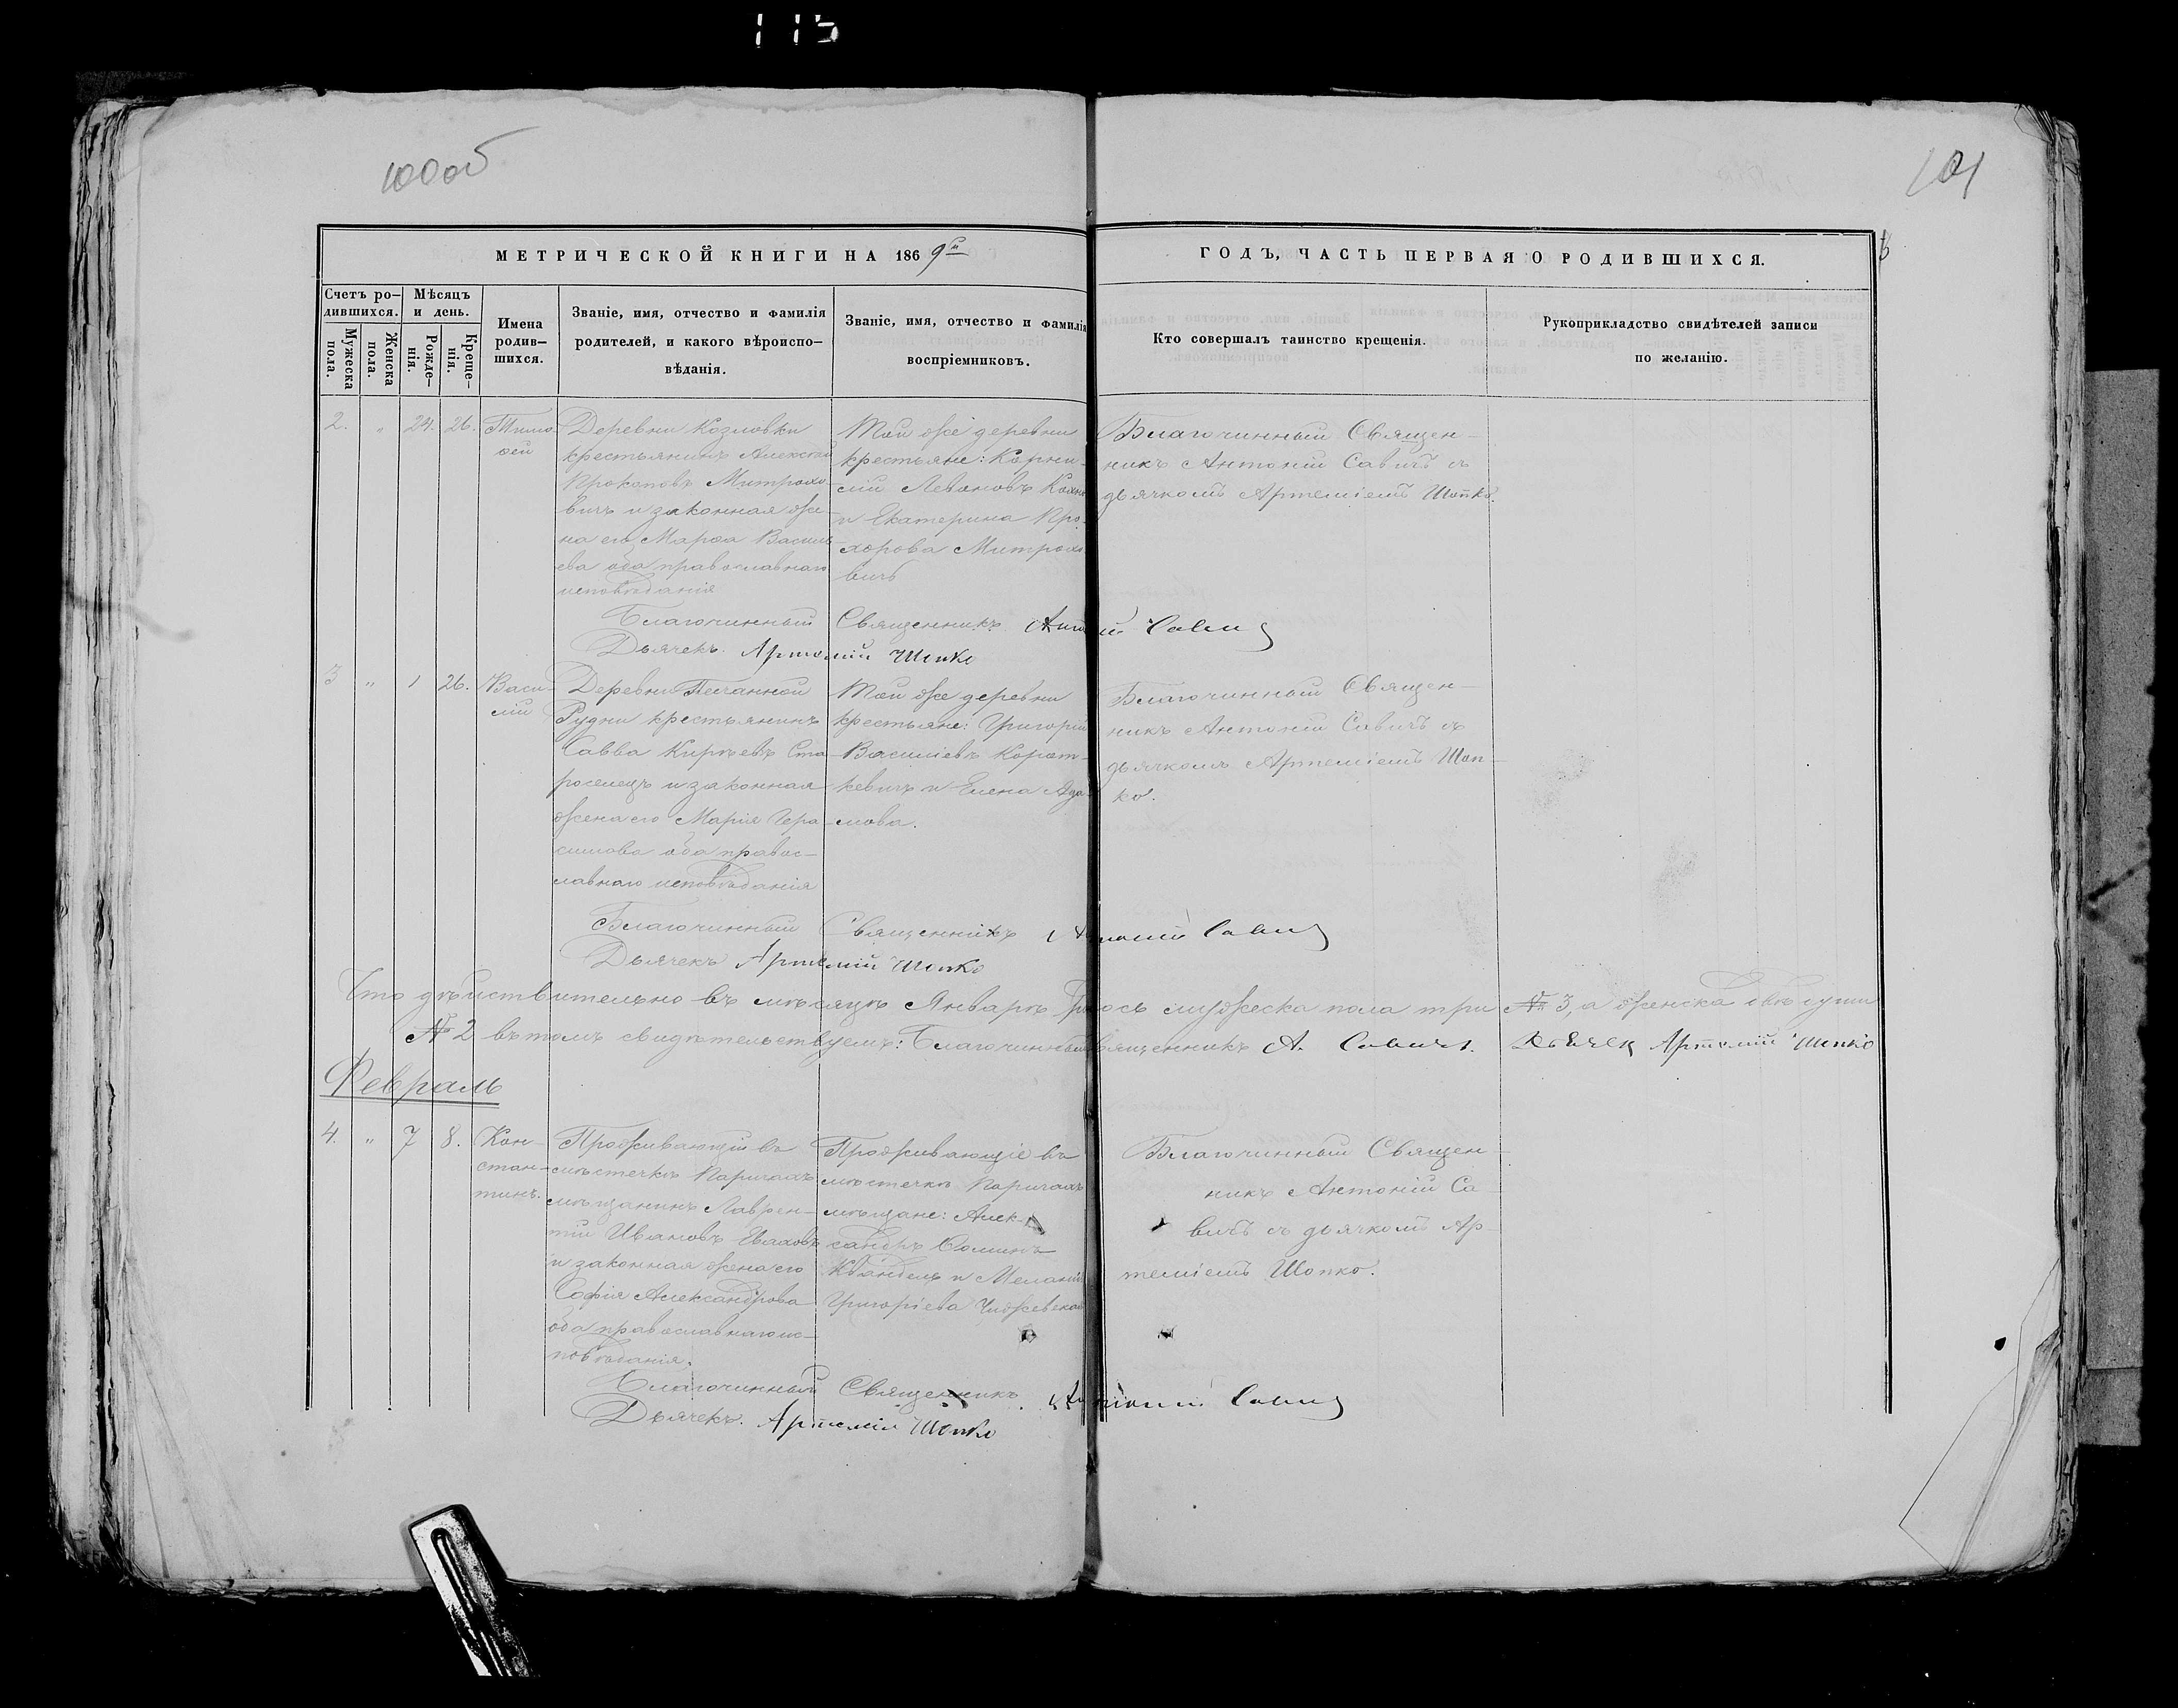 115
100об
101
МЕТРИЧЕСКОЙ КНИГИ НА 1869й
ГОДЪ, ЧАСТЬ ПЕРВАЯ О РОДИВШИХСЯ.
Счетъ ро-
дившихся.
Мужеска
пола.
Женска
пола.
Мѣсяцъ
и день.
Рожде-
нія.
Креще-
нія.
Имена
родив-
шихся.
Званіе, имя, отчество и фамилія
родителей, и какого вѣроиспо-
вѣданія.
Званіе, имя, отчество и фамилія
воспріемниковъ.
Кто совершалъ таинство крещенія.
Рукоприкладство свидѣтелей записи
по желанію.
2. " 24. 26.
Тимо-
ѳей
Деревни Козловки
крестьянинъ Алексѣй
Прокоповъ Митрохо-
вичъ и законная же-
на его Марѳа Василь-
ева оба православнаго
исповѣданія
Той же деревни
крестьяне: Корни-
лій Левановъ
и Екатерина Про-
хорова Митрохо-
вичъ
Благочинный Священ-
никъ Антоній Савичъ съ
дьячкомъ Артеміемъ Шопко.
Благочинный Священникъ Антоній Савичъ
Дьячекъ Артемій Шопко
3 " 1 26.
Васи-
лій
Деревни Песчанной
Рудни крестьянинъ
Савва Кирѣевъ Ста-
роселецъ и законная
жена его Марія Гера-
симова оба правос-
лавнаго исповѣданія
Той же деревни
крестьяне: Григорій
Василіевъ Корот-
кевичъ и Елена Ада-
мова.
Благочинный Священ-
никъ Антоній Савичъ съ
дьячкомъ Артеміемъ Шоп-
ко.
Благочинный Священникъ Антоній Савичъ
Дьячекъ Артемій Шопко
Что дѣйствительно въ мѣсяцѣ Январѣ мужеска пола три № 3, а женска двѣ души
№ 2 въ томъ свидѣтельствуемъ: Благочинный Священникъ А. Савичъ. Дьячек Артемій Шопко
Февраль
4. " 7 8.
Кон-
стан-
тинъ.
Проживающій въ
мѣстечкѣ Паричахъ
мѣщанинъ Лаврен-
тій Ивановъ
и законная жена его
Софія Александрова
оба православнаго ис-
повѣданія.
Проживающіе въ
мѣстечкѣ Паричахъ
мѣщане: Алек-
сандръ Ѳоминъ
и Меланія
Григоріева
Благочинный Священ-
никъ Антоній Са-
вичъ съ дьячкомъ Ар-
теміемъ Шопко.
Благочинный Священникъ Антоній Савичъ
Дьячекъ. Артемій Шопко